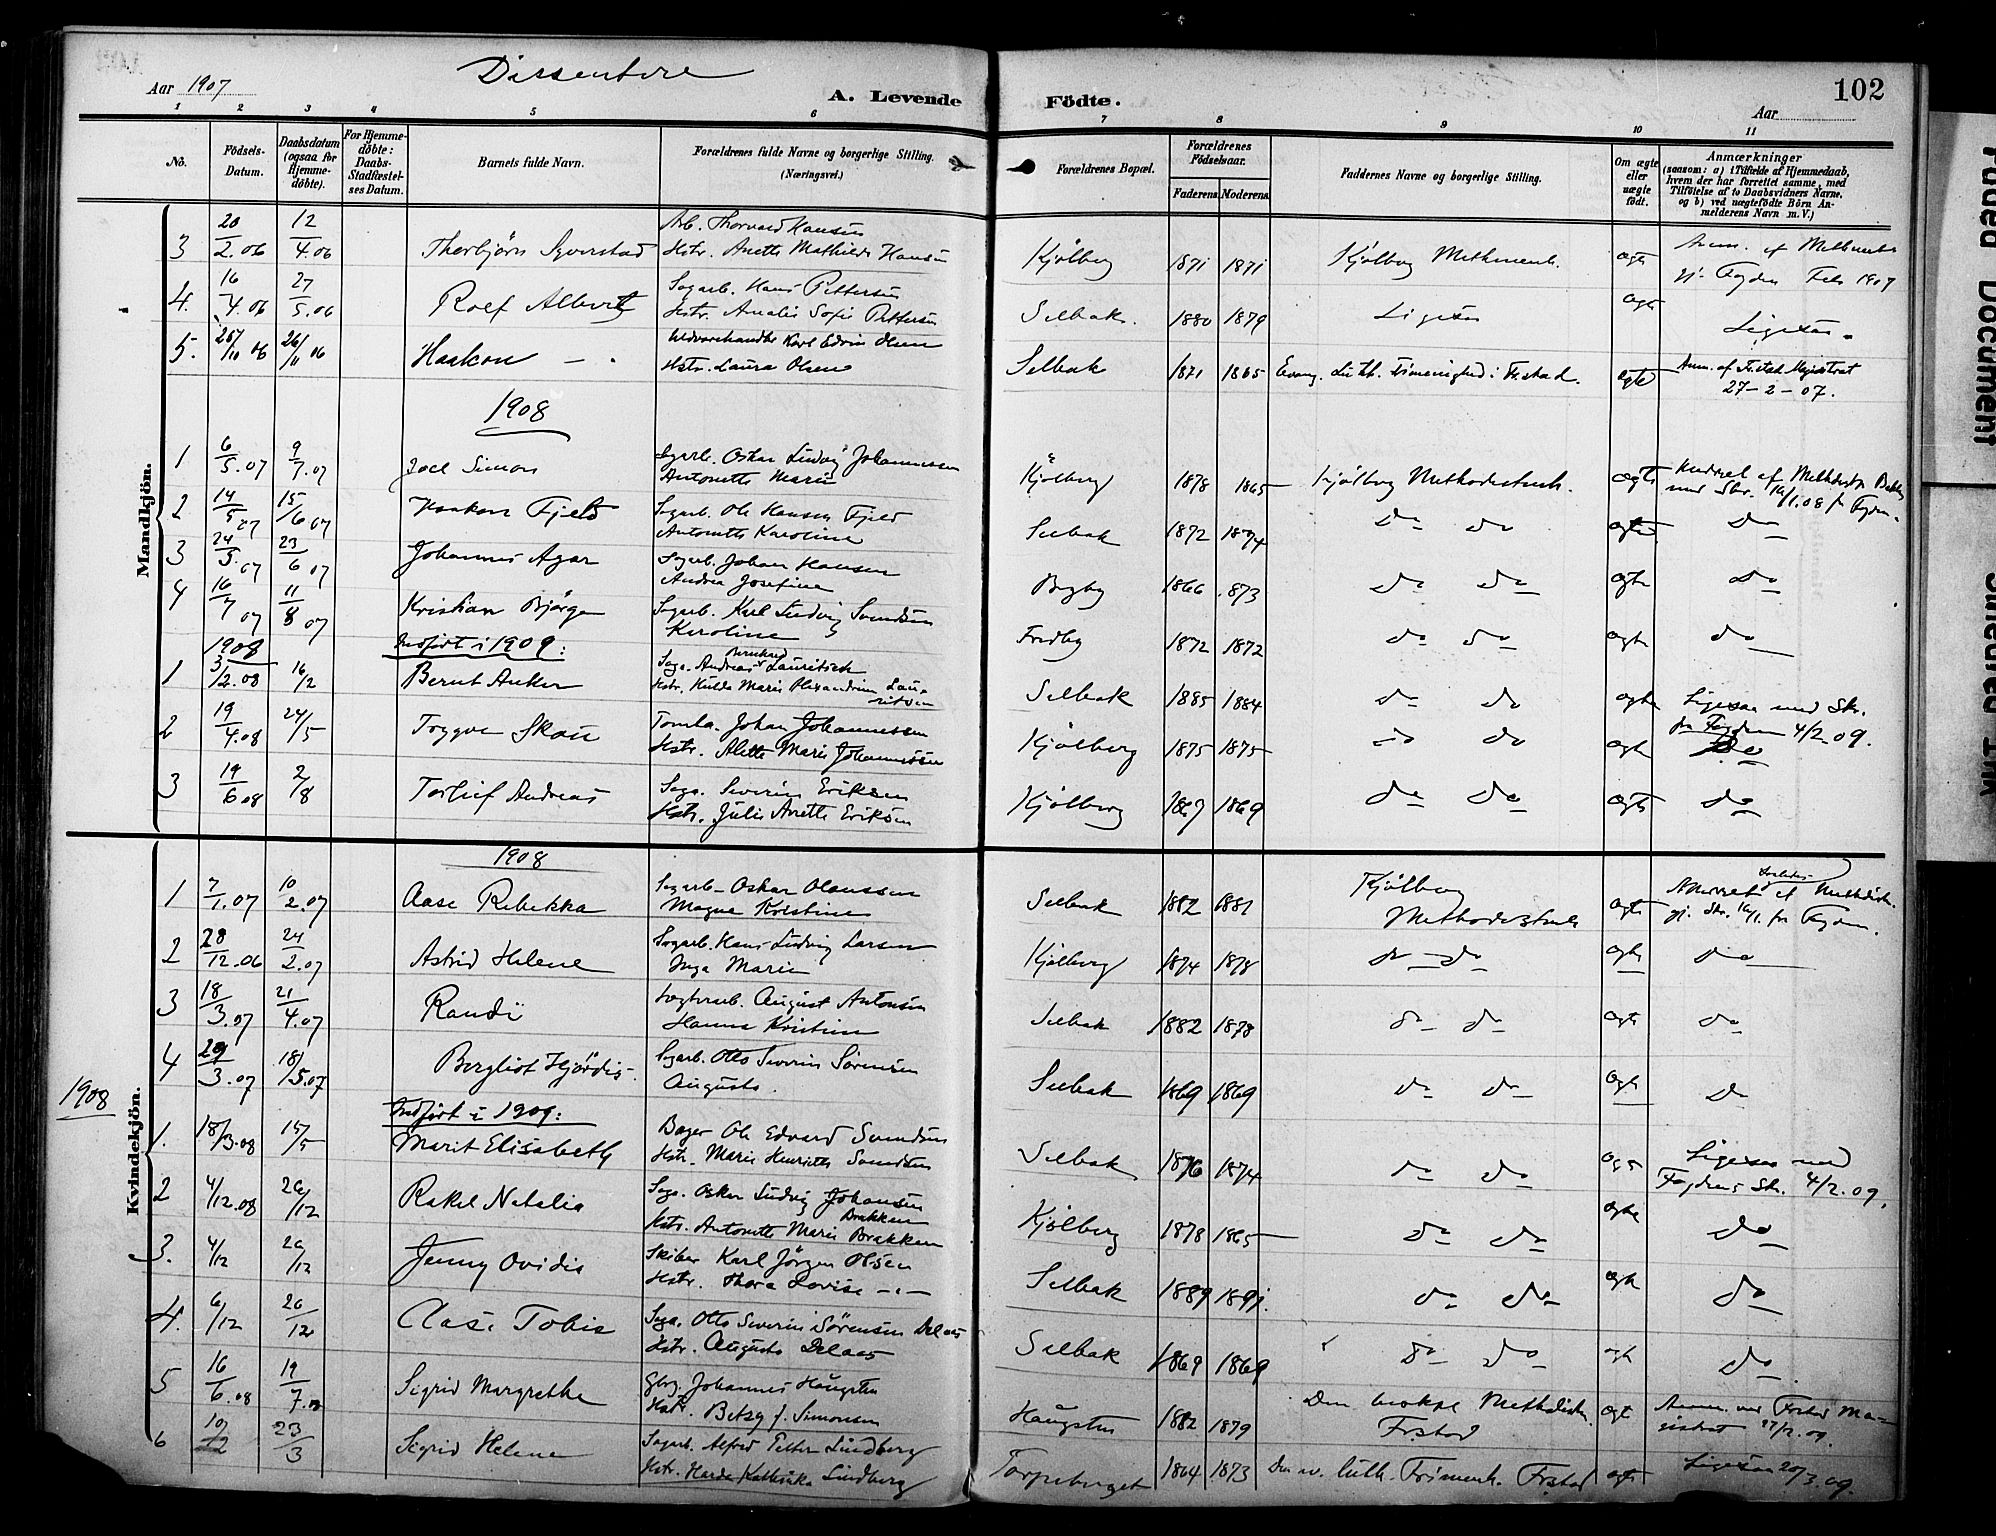 Dissentere
102
Aar 1907
A. Levende Födte.
Aar
1 2 3 4 5 6 7 8 9 10 11
No.
Födsels-Datum.
Daabsdatum (ogsaa for Hjemme-döbte).
For Hjemme-döbte: Daabs-Stadfæstel-ses Datum.
Barnets fulde Navn.
Forældrenes fulde Navne og borgerlige Stilling. (Næringsvei.)
Forældrenes Bopæl.
Forældrenes Födselsaar.
Faderens Moderens
Faddernes Navne og borgerlige Stilling.
Om ægte eller uægte födt.
Anmærkninger
(saasom: a) i Tilfælde af Hjemmedaab, hvem der har forrettet samme, med Tilföielse af to Daabsvidners Navne, og b) ved uægtefödte Börn An-melderens Navn m. V.)
Mandkjön.
3 20/2.06 12/4.06 Thorbjörn Syverstad Arb. Thorvard Hansen
Hstr. Anette Mathilde Hansen Kjølberg 1871 1871 Kjølberg Methmenh. ægte
4. 16/4.06 27/5.06 Rolf Albert Sagarb. Hans Pettersen
Hstr. Amalie Sofie Pettersen Selbak. 1880 1879 Ligesaa ægte Ligesaa.
5. 25/11 06 26/11 06 Haakon Karl Edvin Olsen
Hstr. Laura Olsen Selbak 1871 1865 Evang. Luth. Frimenighed i Frstad. ægte Anm. af Frstad Magistrat
27-2-07.
1908
1 6/5.07 9/7.07 Joel Simon Sagarb. Oskar Ludvig Johannessen
Antonette Marie Kjølberg 1878 1865 Kjølberg Methodistmh. ægte
2 14/5 07 15/6 07 Haakon Fjeld Sagarb. Ole Hansen Fjeld
Antonette Karoline Selbak 1872 1874 do do ægte do
3 24/5.07 23/6 07 Johannes Agar Sagarb. Johan Hansen
Andrea Josefine 1866 1873 do do ægte do
4 16/7 07 11/8 07 Kristian Bjørge Sagarb. Karl Ludvig Svendsen
Karoline Fredby 1872 1872 do do ægte do
1908 Indført i 1909:
1 3/2.08 16/2 Bernt Anker Saga. Andreas Lauritsen
Hstr. Hulda Marie Alexandrine Lauritsen Selbak 1885 1884 do do ægte Ligesaa med Skr.
fra Fogden 4/2.09.
2 19/4.08 24/5 Trygve Skau Tomta. Johan Johannessen
Hstr. Alette Marie Johannessen Kjølberg 1875 1875 do do ægte do
3 19/6 08 2/8 Torleif Andreas Saga. Severin Eriksen
Hstr. Julie Anette Eriksen Kjølberg 1867 1869 do do ægte do
Kvindekjön.
1908
1 7/1.07 10/2.07 Aase Rebekka Sagarb. Oskar Olaussen
Magna Kristine Selbak 1882 1881 Kjølberg
Methodistmh ægte
2 28/12.06 24/2.07 Astrid Helene Sagarb. Hans Ludvig Larsen
Inga Marie Kjølberg 1874 1878 do do ægte do
3 18/3.07 21/4.07 Randi August Antonsen
Hanna Kristine Selbak 1882 1878 do do ægte do
4 29/3.07 18/5.07 Bergliot Hjördis Sagarb. Otto Severin Sørensen
Augusta. Selbak 1869 1869 do do ægte do
1908 Indført i 1909:
1. 18/3.08 15/5 Marit Elisabeth Bager Ole Edvard Svendsen
Hstr. Marie Henriette Svendsen Selbak 1876 1874 do do ægte Ligesaa med
Fogdens Skr. 4/2.09.
2 4/12.08 26/12 Rakel Natalia Saga. Oskar Ludvig Johansen
Brakken
Hstr. Antonette Marie Brakken Kjølberg 1878 1865 do do ægte do
3. 4/12 26/12 Jenny Ovidia Skiber Karl Jörgen Olsen
Hstr. Thora Lovise Selbak 1889 1891. do do ægte do
4. 6/12 26/12 Aase Tobia Saga. Otto Severin Sørensen Delaas
Hstr. Augusta Delaas Selbak 1869 1869 do do ægte do
5 16/6.08 19/7.08 Sigrid Margrethe Gbrg. Johannes Haugsten
Hstr. Betzy f. Simonsen Haugsten 1882 1879
Frstad ægte
6 Sigrid Helene 23/3 Sagarb. Alfred Petter Lindberg
Hstr. Lindberg Torpeberget 1864 1873 Den ev. luth. Frimenh. Frstad ægte Ligesaa 20/3.09.
Faded Document